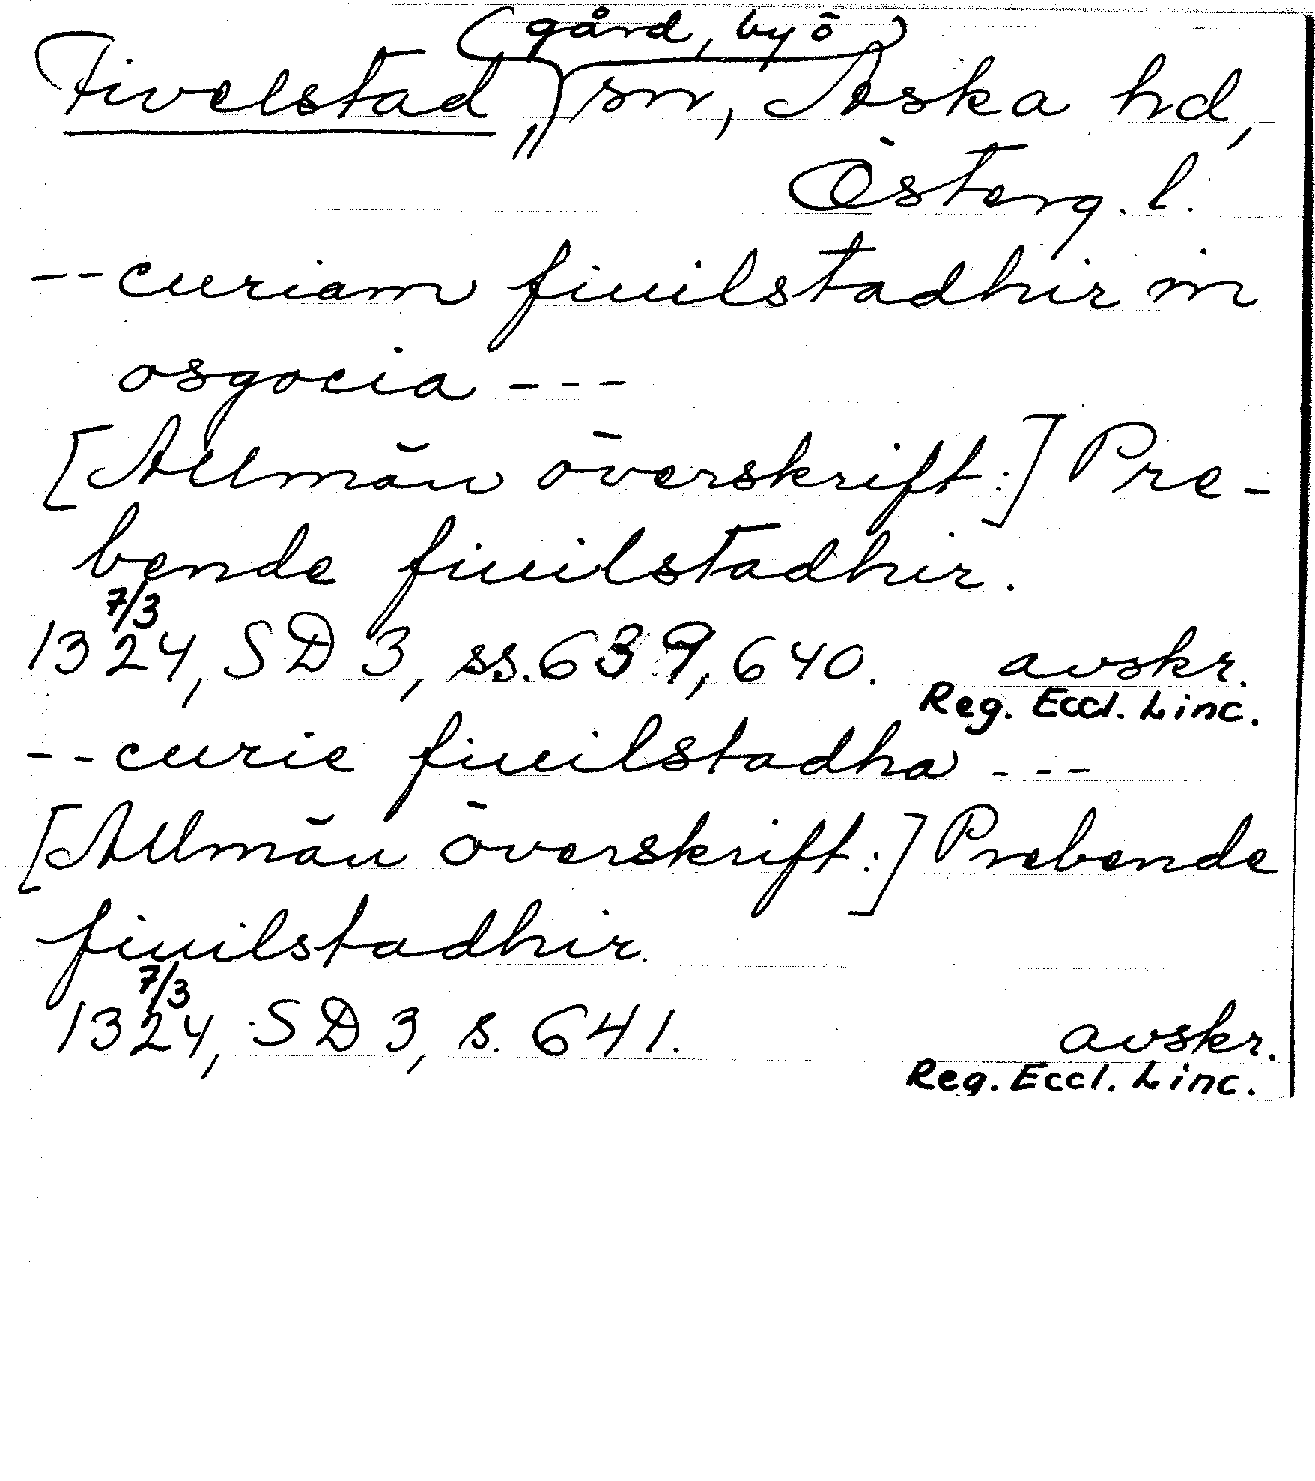 (gård, by ö)
Fivelstad sn, Aska hd,
Österg. l.
-- curiam fiuilstadhir in
osgocia ---
[Allmän överskrift:] Pre-
bende fiuilstadhir.
7/3
1324, SD 3, ss. 639, 640. avskr.
Reg. Eccl. Linc.
-- curie fiuilstadha ---
[Allmän överskrift:] Prebende
fiuilstadhir.
7/3
1324, SD 3, s. 641. avskr.
Reg. Eccl. Linc.